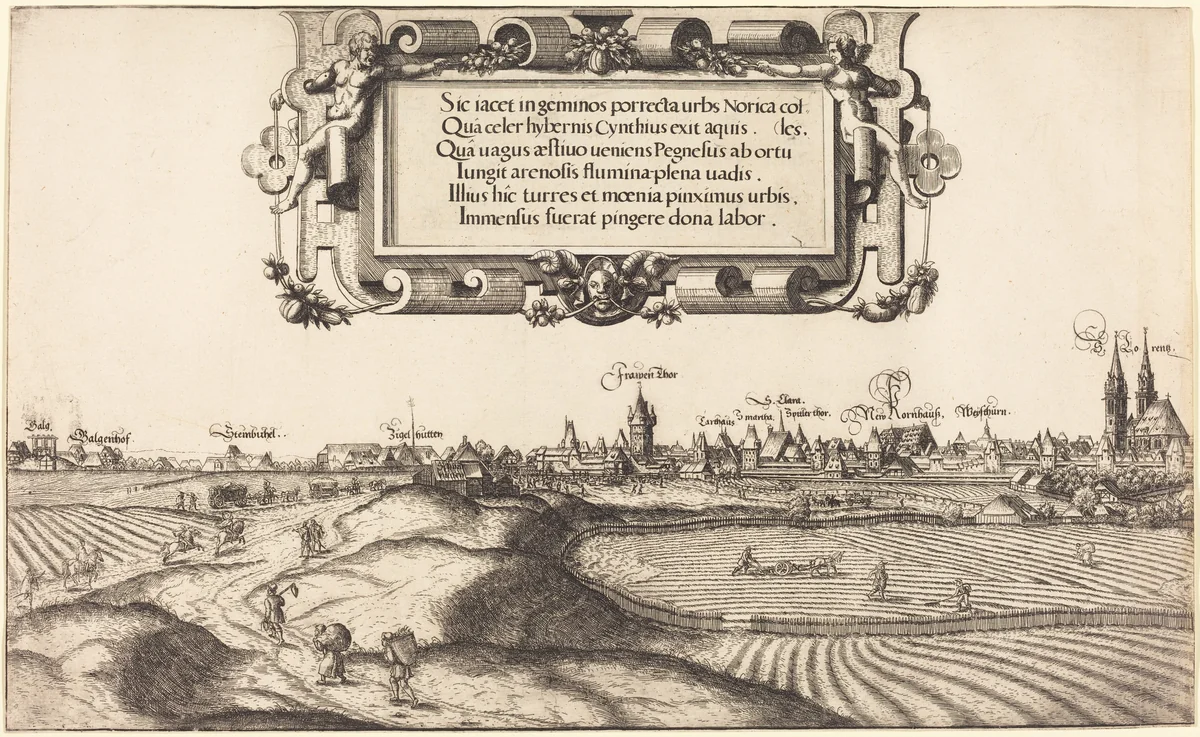 Sic iacet in geminos porrecta urbs Norica col
Quâ celer hybernis Cynthius exit aquis . (les.
Quâ uagus æstiuo ueniens Pegnesus ab ortu
Iungit arenosis flumina plena uadis .
Illius hîc turres et mœnia pinximus urbis,
Immensus fuerat pingere dona labor .
S. Lorentz.
Frawen Thor
S. Clara.
Galg.
Galgenhof
Steinbühel..
Zigel hütten
Carthaus
S martha.
Spitler thor.
New Kornhauß.
Weisthurn.